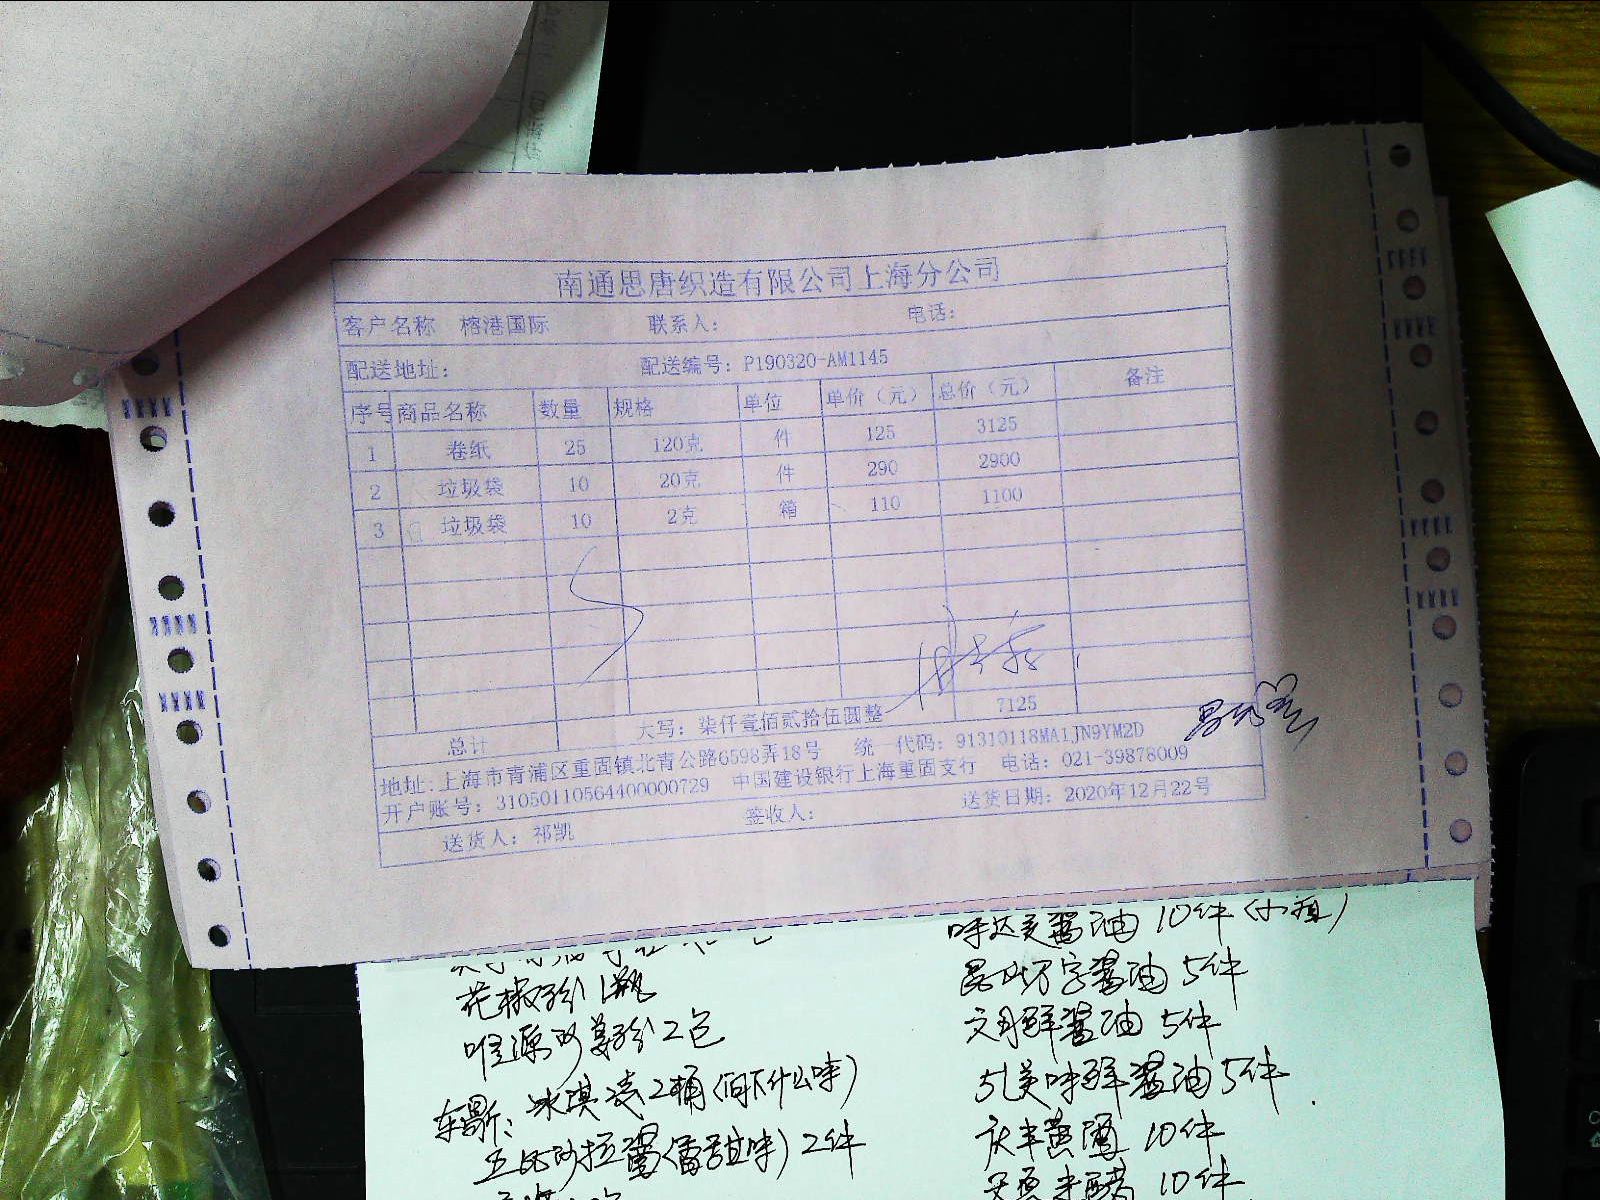 南通思唐织造有限公司上海分公司
客户名称 榕港国际 联系人： 电话：
配送地址： 配送编号：P190320-AM1145
序号 商品名称 数量 规格 单位 单价（元） 总价（元） 备注
1 卷纸 25 120克 件 125 3125
2 垃圾袋 10 20克 件 290 2900
3 垃圾袋 10 2克 箱 110 1100
总计 大写：柒仟壹佰贰拾伍圆整 7125
地址：上海市青浦区重固镇北青公路6598弄18号 统一代码：91310118MA1JN9YM2D
开户账号：31050110564400000729 中国建设银行上海重固支行 电话：021-39878009
送货人：祁凯 签收人： 送货日期：2020年12月22号
花椒粉1瓶
2包
冰淇凌2桶（问下什么味）
沙拉酱（香甜味）2件
味达美酱油 10件（小瓶）
昆山万字酱油 5件
鲜酱油 5件
美味鲜酱油5件
10件
10件